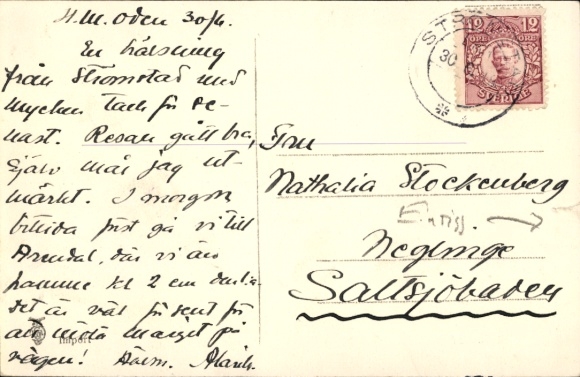 H.M. Oden 30/4.
En hälsning
från Strömstad med
mycken tack för se-
nast. Resan gått bra,
själv mår jag ut-
märkt. I morgon
bittida först gå vi till
Arendal, där vi äro
framme kl 2 em
det är väl för sent för
att möta Margit på
vägen!
Fru
Nathalia Stockenberg
Neglinge
Saltsjöbaden
Import
12 12
ÖRE ÖRE
SVERIGE
STR
30